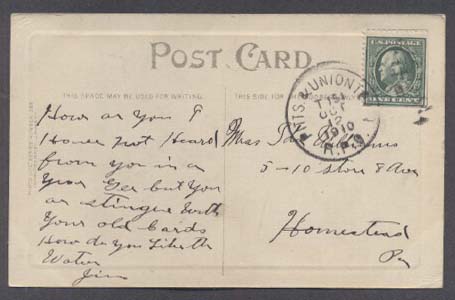 POST CARD
THIS SPACE MAY BE USED FOR WRITING.
THIS SIDE FOR
How are You I
Have not Heard
from you in a
Year Gee but You
are stingee With
Your old Cards
How do You Like the
Water
Jim
Miss Ida
5-10 Store 8 Ave
Homestead
Pa
U.S. POSTAGE
ONE CENT
PITTS. & UNIONT
OCT
1910
R.P.O.